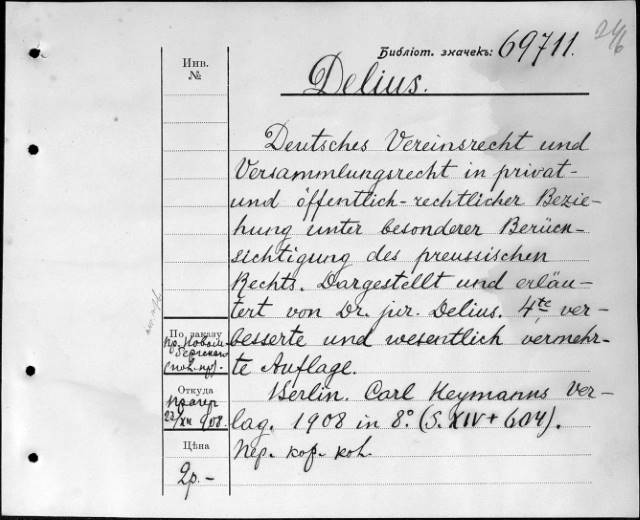 24/6
Библіот. значекъ: 69711.
Инв.
№
Delius.
Deutsches Vereinsrecht und
Versammlungsrecht in privat-
und öffentlich-rechtlicher Bezie-
hung unter besonderer Berück-
sichtigung des preussischen
Rechts. Dargestellt und erläu-
tert von Dr. jur. Delius. 4te ver-
besserte und wesentlich vermehr-
te Auflage.
Berlin. Carl Heymanns Ver-
lag. 1908 in 8°. (S. XIV + 604).
Пер. кор. кол.
По заказу
пр. Новом-
бергскаго
(пол. пр).
Откуда
Прагер
22/XII 908.
Цѣна
2р.-